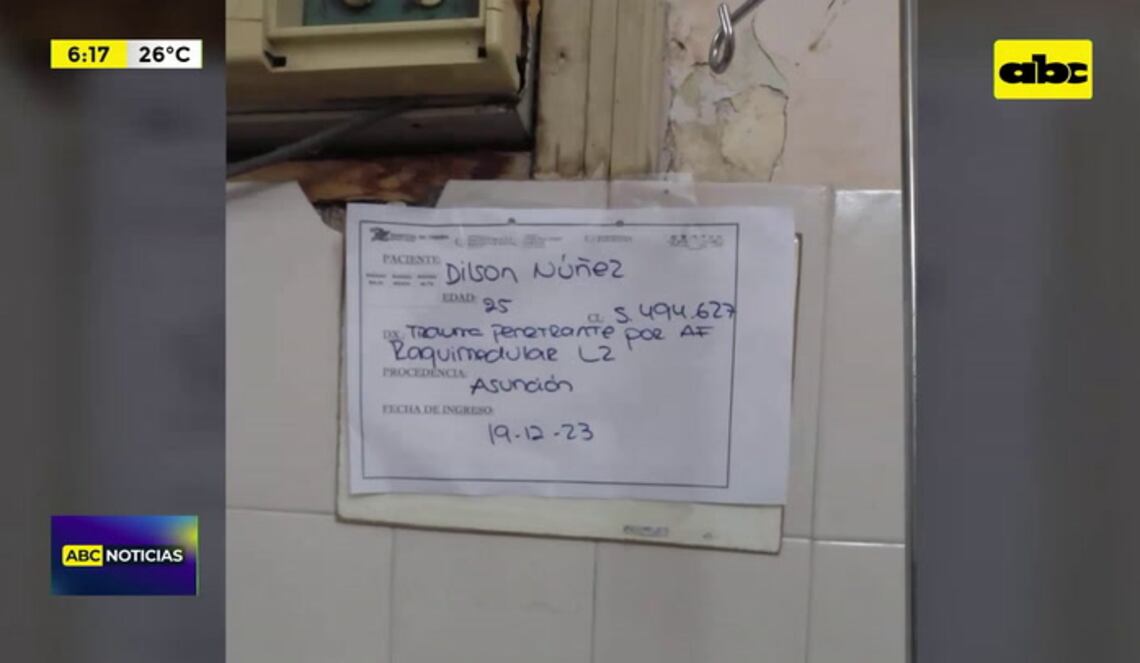 6:17 26°C
abc
PACIENTE: Dilson Núñez
EDAD: 25
CI: 5.494.627
DX: Trauma penetrante por AF
Raquimedular L2
PROCEDENCIA:
Asunción
FECHA DE INGRESO:
19-12-23
ABC NOTICIAS